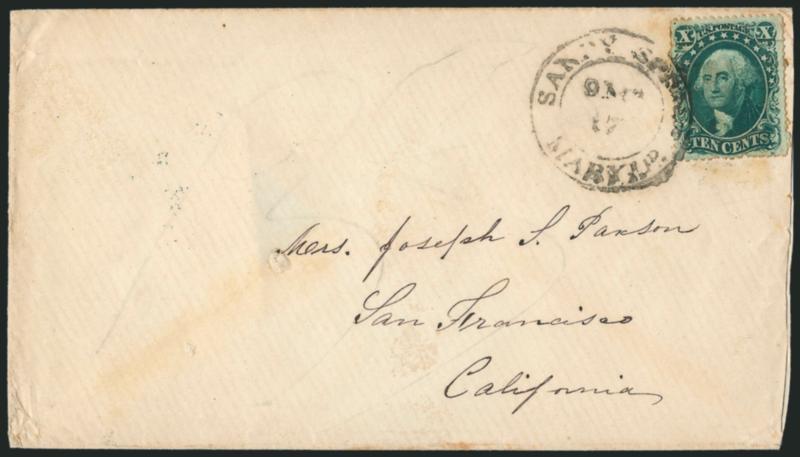 X U.S. POSTAGE X
TEN CENTS
SANDY SPRING
17
MARYLD.
Mrs. Joseph S. Paxson
San Francisco
California